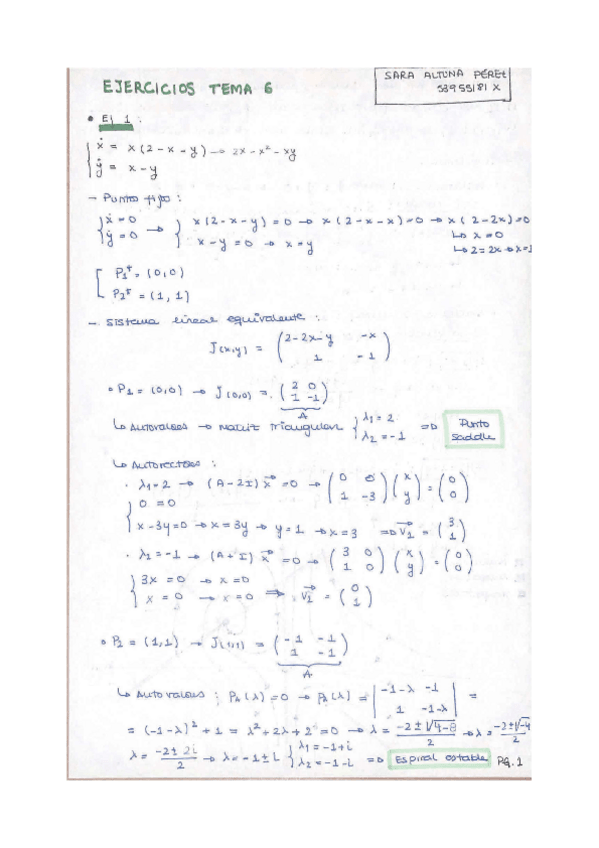 SARA ALTUNA PÉREZ
58955181 X
EJERCICIOS TEMA 6
• Ej 1:
{ ẋ = x(2-x-y) → 2x - x² - xy
ẏ = x-y
- Puntos fijos:
{ ẋ=0 ẏ=0 → { x(2-x-y)=0 → x(2-x-x)=0 → x(2-2x)=0
x-y=0 → x=y ↳ x=0
↳ 2=2x → x=1
[ P₁* = (0,0)
P₂* = (1,1)
- Sistema lineal equivalente:
J(x,y) = ( 2-2x-y -x
1 -1 )
• P₁ = (0,0) → J(0,0) = ( 2 0
1 -1 )
A
↳ Autovalores → Matriz triangular { λ₁=2 λ₂=-1 ⇒ Punto saddle
↳ Autovectores:
· λ₁=2 → (A-2I) x⃗ = 0 → ( 0 0 1 -3 ) ( x y ) = ( 0 0 )
{ 0 = 0
x-3y=0 → x=3y → y=1 → x=3 ⇒ v⃗₁ = ( 3 1 )
· λ₂=-1 → (A+I) x⃗ = 0 → ( 3 0 1 0 ) ( x y ) = ( 0 0 )
{ 3x = 0 → x=0
x = 0 → x=0 ⇒ v⃗₂ = ( 0 1 )
• P₂ = (1,1) → J(1,1) = ( -1 -1
1 -1 )
A
↳ Autovalores: P_A(λ)=0 → P_A(λ) = | -1-λ -1
1 -1-λ | =
= (-1-λ)² + 1 = λ²+2λ+2 = 0 → λ = -2±√4-8 / 2 → λ = -2±√-4 / 2
λ = -2±2i / 2 → λ = -1±i { λ₁=-1+i λ₂=-1-i ⇒ Espiral estable Pg.1